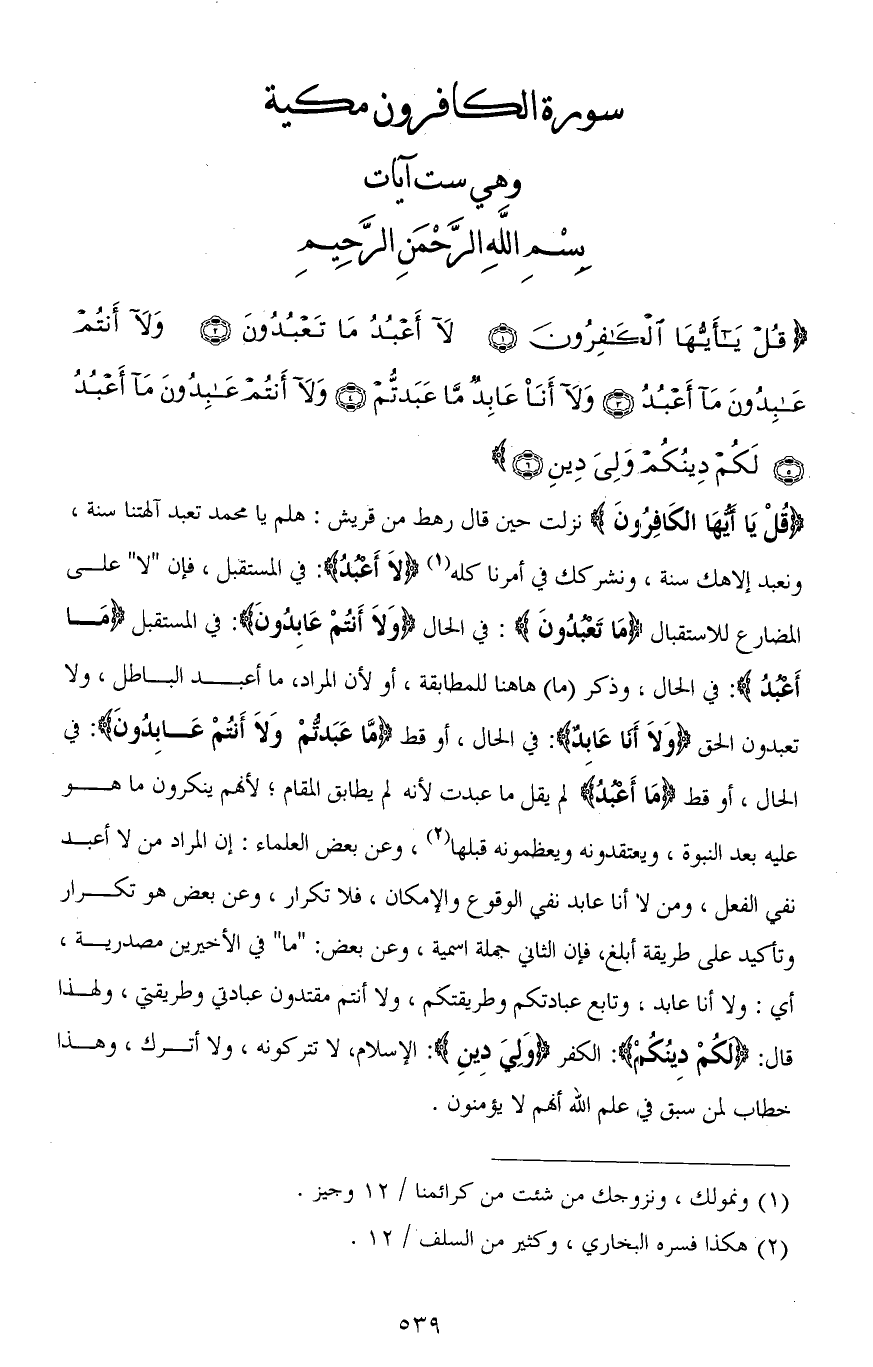 سورة الكافرون مكية
وهي ست آيات
بِسْمِ اللَّهِ الرَّحْمَنِ الرَّحِيمِ
﴿ قُلْ يَـٰٓأَيُّهَا ٱلْكَـٰفِرُونَ ۝١ لَآ أَعْبُدُ مَا تَعْبُدُونَ ۝٢ وَلَآ أَنتُمْ
عَـٰبِدُونَ مَآ أَعْبُدُ ۝٣ وَلَآ أَنَا۠ عَابِدٌ مَّا عَبَدتُّمْ ۝٤ وَلَآ أَنتُمْ عَـٰبِدُونَ مَآ أَعْبُدُ
۝٥ لَكُمْ دِينُكُمْ وَلِىَ دِينِ ۝٦ ﴾
﴿قُلْ يَا أَيُّهَا الكَافِرُونَ ﴾ نزلت حين قال رهط من قريش : هلم يا محمد تعبد آلهتنا سنة ،
ونعبد إلاهك سنة ، ونشركك في أمرنا كله(١) ﴿لاَ أَعْبُدُ﴾: في المستقبل ، فإن "لا" علـــى
المضارع للاستقبال ﴿مَا تَعْبُدُونَ ﴾ : في الحال ﴿وَلاَ أَنتُمْ عَابِدُونَ﴾: في المستقبل ﴿مَـــا
أَعْبُدُ ﴾: في الحال ، وذكر (ما) هاهنا للمطابقة ، أو لأن المراد، ما أعبـــد البـــاطل ، ولا
تعبدون الحق ﴿وَلاَ أَنَا عَابِدٌ﴾: في الحال ، أو قط ﴿مَّا عَبَدتُّمْ وَلاَ أَنتُمْ عَـــابِدُونَ﴾: في
الحال ، أو قط ﴿مَا أَعْبُدُ﴾ لم يقل ما عبدت لأنه لم يطابق المقام ؛ لأنهم ينكرون ما هـــو
عليه بعد النبوة ، ويعتقدونه ويعظمونه قبلها(٢) ، وعن بعض العلماء : إن المراد من لا أعبـد
نفي الفعل ، ومن لا أنا عابد نفي الوقوع والإمكان ، فلا تكرار ، وعن بعض هو تكـــرار
وتأكيد على طريقة أبلغ، فإن الثاني جملة اسمية ، وعن بعض: "ما" في الأخيرين مصدريـــة ،
أي : ولا أنا عابد ، وتابع عبادتكم وطريقتكم ، ولا أنتم مقتدون عبادتي وطريقتي ، ولهـــذا
قال: ﴿لَكُمْ دِينُكُمْ﴾: الكفر ﴿وَلِيَ دِينِ ﴾: الإسلام، لا تتركونه ، ولا أتـــرك ، وهـــذا
خطاب لمن سبق في علم الله أنهم لا يؤمنون .
(١) ونمولك ، ونزوجك من شئت من كرائمنا / ١٢ وجيز .
(٢) هكذا فسره البخاري ، وكثير من السلف / ١٢ .
٥٣٩